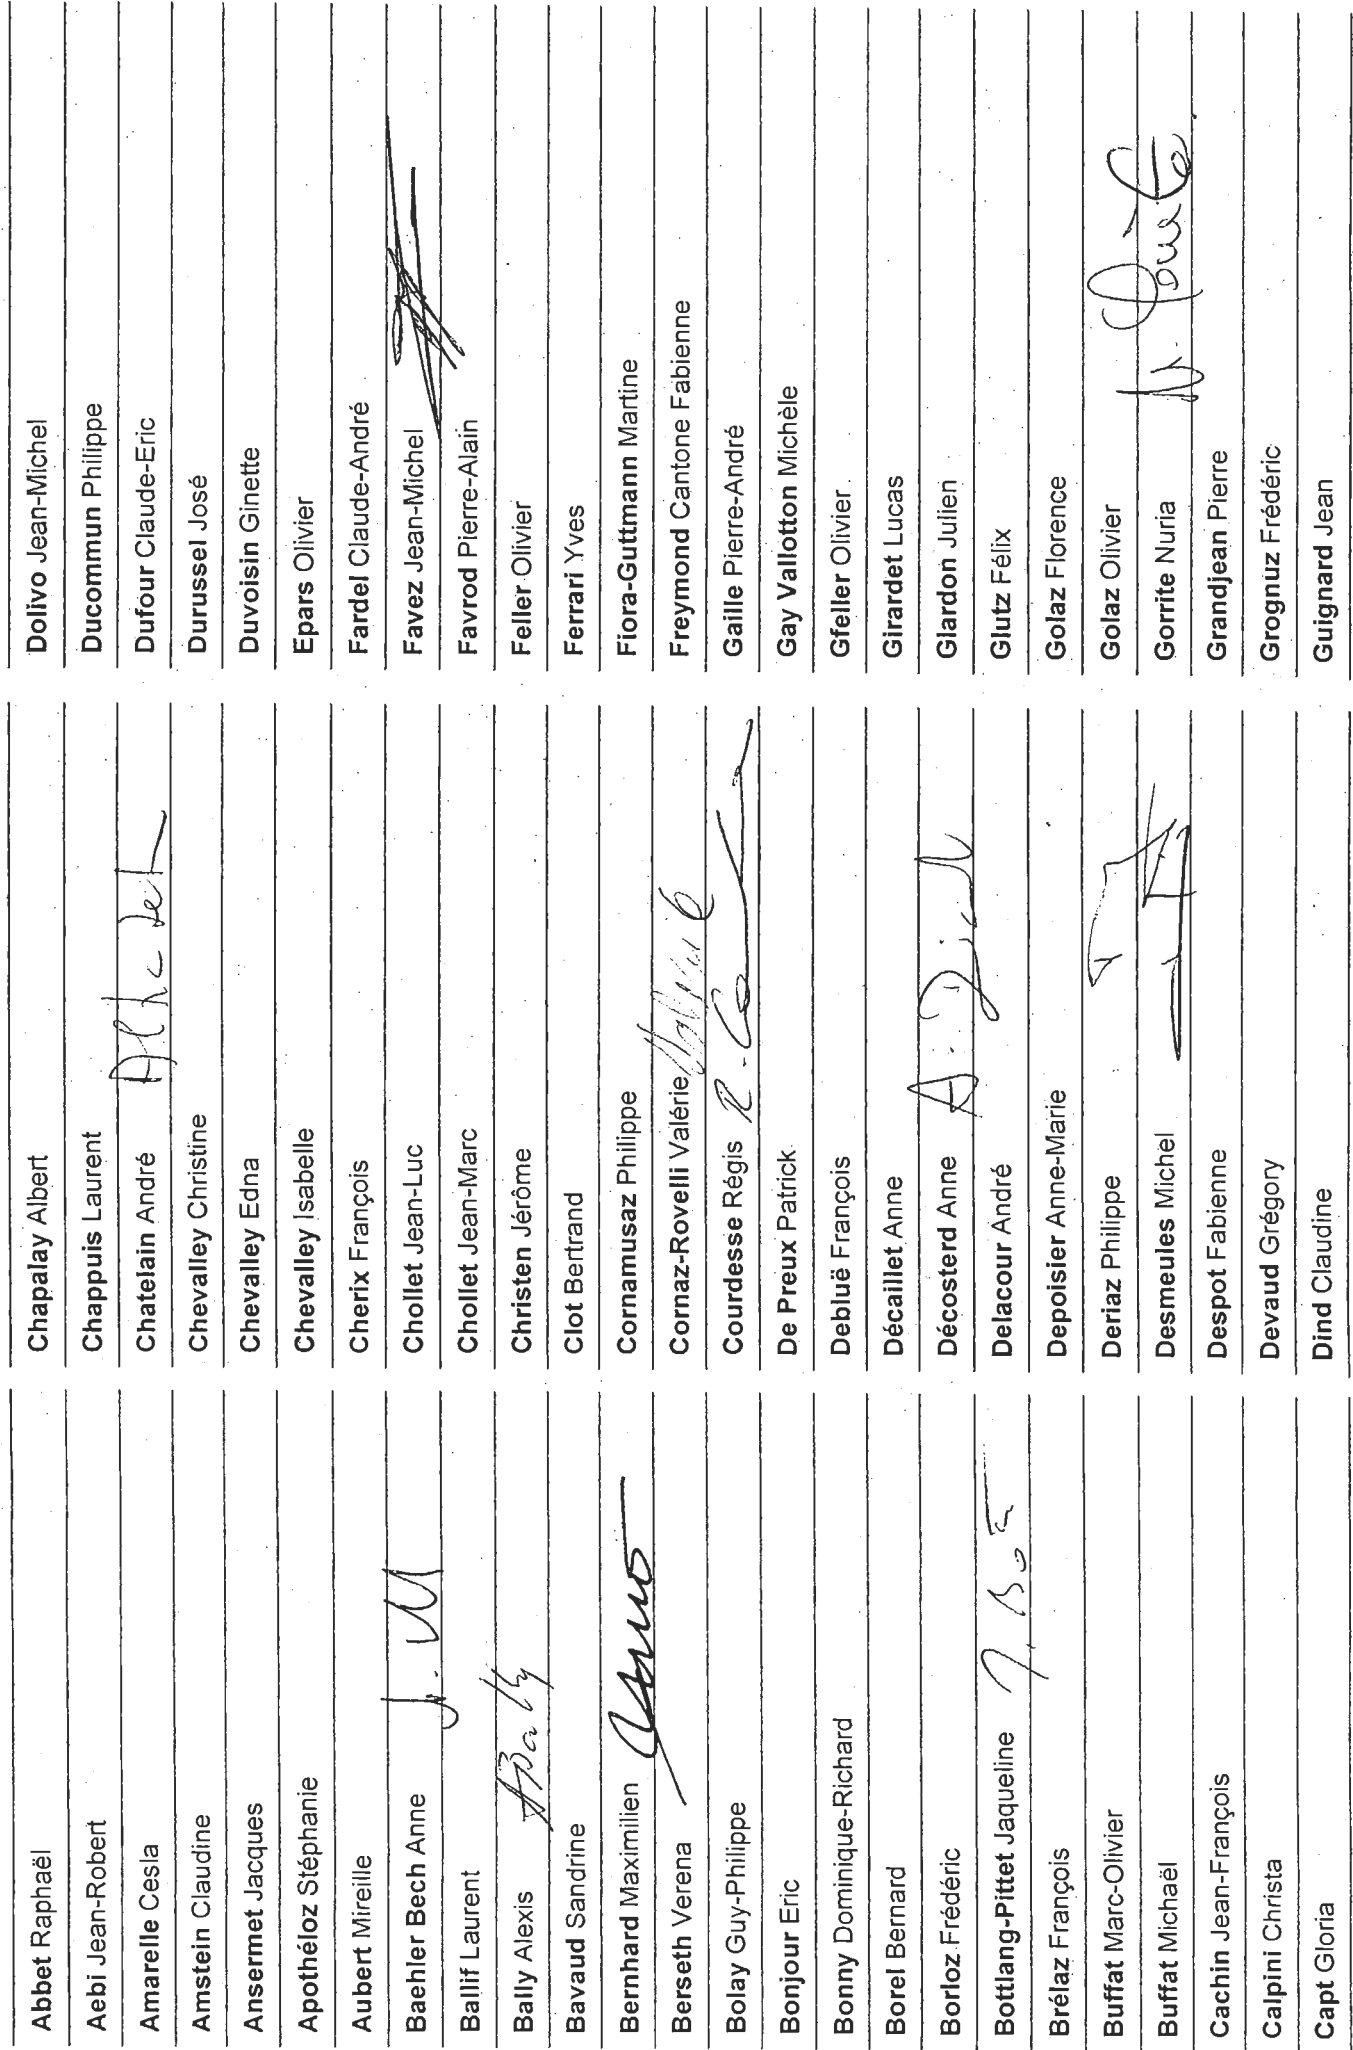 Abbet Raphaël
Aebi Jean-Robert
Amarelle Cesla
Amstein Claudine
Ansermet Jacques
Apothéloz Stéphanie
Aubert Mireille
Baehler Bech Anne
Ballif Laurent
Bally Alexis
ABally
Bavaud Sandrine
Bernhard Maximilien
Berseth Verena
Bolay Guy-Philippe
Bonjour Eric
Bonny Dominique-Richard
Borel Bernard
Borloz Frédéric
Bottlang-Pittet Jaqueline
Brélaz François
Buffat Marc-Olivier
Buffat Michaël
Cachin Jean-François
Calpini Christa
Capt Gloria
Chapalay Albert
Chappuis Laurent
Chatelain André
Chevalley Christine
Chevalley Edna
Chevalley Isabelle
Cherix François
Chollet Jean-Luc
Chollet Jean-Marc
Christen Jérôme
Clot Bertrand
Cornamusaz Philippe
Cornaz-Rovelli Valérie
Courdesse Régis
De Preux Patrick
Debluë François
Décaillet Anne
Décosterd Anne
Delacour André
Depoisier Anne-Marie
Deriaz Philippe
Desmeules Michel
Despot Fabienne
Devaud Grégory
Dind Claudine
Dolivo Jean-Michel
Ducommun Philippe
Dufour Claude-Eric
Durussel José
Duvoisin Ginette
Epars Olivier
Fardel Claude-André
Favez Jean-Michel
Favrod Pierre-Alain
Feller Olivier
Ferrari Yves
Fiora-Guttmann Martine
Freymond Cantone Fabienne
Gaille Pierre-André
Gay Vallotton Michèle
Gfeller Olivier
Girardet Lucas
Glardon Julien
Glutz Félix
Golaz Florence
Golaz Olivier
Gorrite Nuria
Grandjean Pierre
Grognuz Frédéric
Guignard Jean